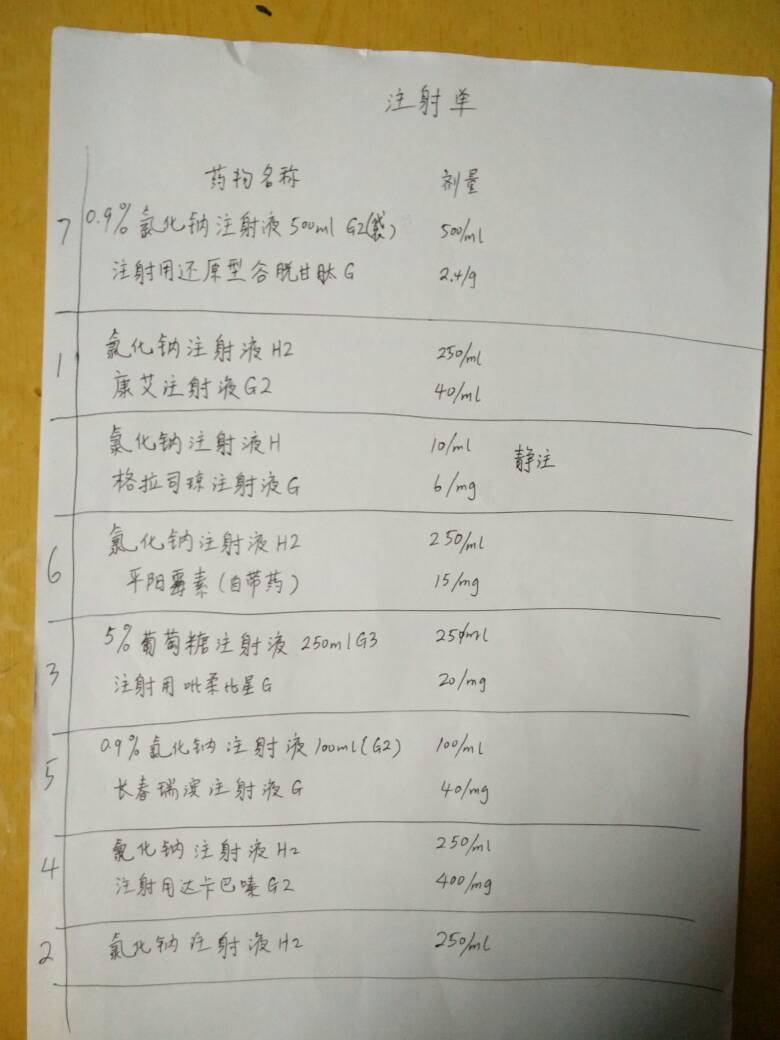 注射单
药物名称 剂量
7 0.9%氯化钠注射液500ml G2(袋) 500/ml
注射用还原型谷胱甘肽G 2.4/g
1 氯化钠注射液H2 250/ml
康艾注射液G2 40/ml
氯化钠注射液H 10/ml 静注
格拉司琼注射液G 6/mg
6 氯化钠注射液H2 250/ml
平阳霉素(自带药) 15/mg
3 5%葡萄糖注射液 250ml G3 250/ml
注射用吡柔比星G 20/mg
5 0.9%氯化钠注射液100ml(G2) 100/ml
长春瑞滨注射液G 40/mg
4 氯化钠注射液H2 250/ml
注射用达卡巴嗪G2 400/mg
2 氯化钠注射液H2 250/ml